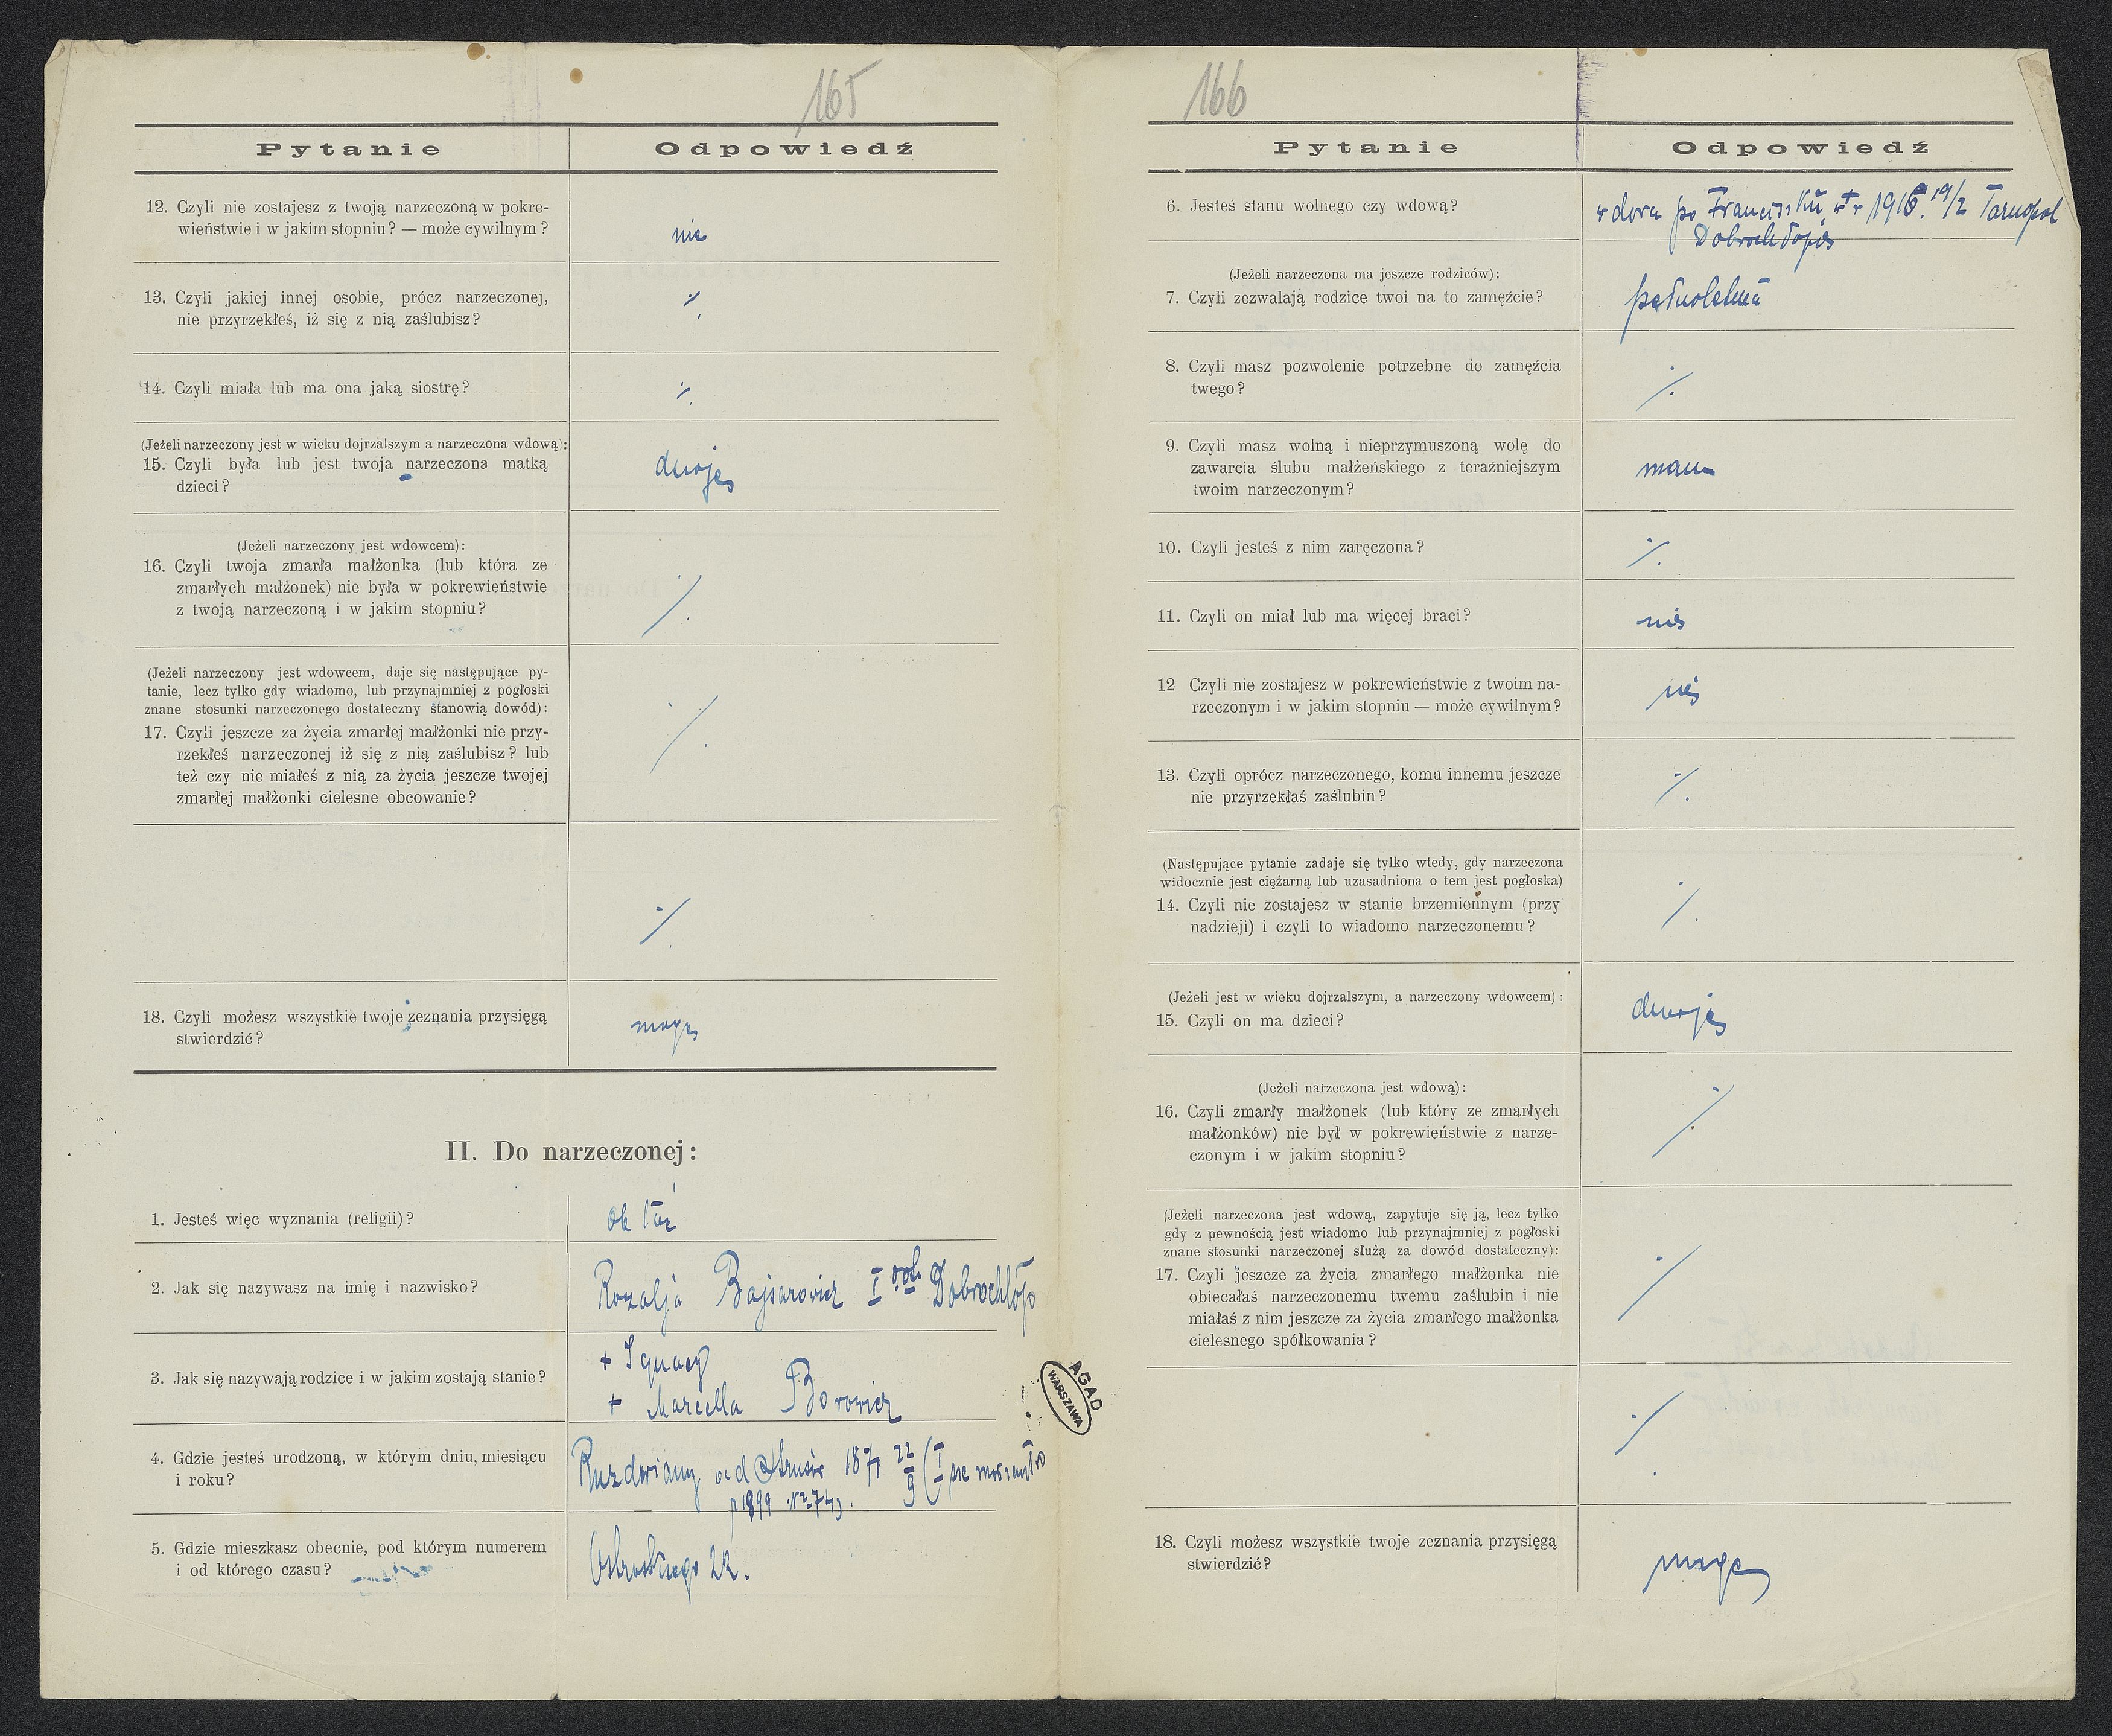 165
Pytanie Odpowiedź
12. Czyli nie zostajesz z twoją narzeczoną w pokre-
wieństwie i w jakim stopniu? — może cywilnym?
nie
13. Czyli jakiej innej osobie, prócz narzeczonej,
nie przyrzekłeś, iż się z nią zaślubisz?
·/.
14. Czyli miała lub ma ona jaką siostrę?
·/.
(Jeżeli narzeczony jest w wieku dojrzalszym a narzeczona wdową):
15. Czyli była lub jest twoja narzeczona matką
dzieci?
dwoje
(Jeżeli narzeczony jest wdowcem):
16. Czyli twoja zmarła małżonka (lub która ze
zmarłych małżonek) nie była w pokrewieństwie
z twoją narzeczoną i w jakim stopniu?
·/.
(Jeżeli narzeczony jest wdowcem, daje się następujące py-
tanie, lecz tylko gdy wiadomo, lub przynajmniej z pogłoski
znane stosunki narzeczonego dostateczny stanowią dowód):
17. Czyli jeszcze za życia zmarłej małżonki nie przy-
rzekłeś narzeczonej iż się z nią zaślubisz? lub
też czy nie miałeś z nią za życia jeszcze twojej
zmarłej małżonki cielesne obcowanie?
·/.
·/.
18. Czyli możesz wszystkie twoje zeznania przysięgą
stwierdzić?
mogę
II. Do narzeczonej:
1. Jesteś więc wyznania (religii)?
ob łać
2. Jak się nazywasz na imię i nazwisko?
Rozalja Bajsarowicz I voto Dobrochłop
3. Jak się nazywają rodzice i w jakim zostają stanie?
+ Ignacy
+ Marcella Borowicz
4. Gdzie jesteś urodzoną, w którym dniu, miesiącu
i roku?
Ruzdwiany ad Strusów 1871 22/9 (I
1899
5. Gdzie mieszkasz obecnie, pod którym numerem
i od którego czasu?
22.
AGAD
WARSZAWA
166
Pytanie Odpowiedź
6. Jesteś stanu wolnego czy wdową?
wdowa po Franciszku + w 1916. 19/2 Tarnopol
Dobrochłopie
(Jeżeli narzeczona ma jeszcze rodziców):
7. Czyli zezwalają rodzice twoi na to zamęźcie?
pełnoletnia
8. Czyli masz pozwolenie potrzebne do zamęźcia
twego?
·/.
9. Czyli masz wolną i nieprzymuszoną wolę do
zawarcia ślubu małżeńskiego z teraźniejszym
twoim narzeczonym?
mam
10. Czyli jesteś z nim zaręczona?
·/.
11. Czyli on miał lub ma więcej braci?
nie
12 Czyli nie zostajesz w pokrewieństwie z twoim na-
rzeczonym i w jakim stopniu — może cywilnym?
nie
13. Czyli oprócz narzeczonego, komu innemu jeszcze
nie przyrzekłaś zaślubin?
·/.
(Następujące pytanie zadaje się tylko wtedy, gdy narzeczona
widocznie jest ciężarną lub uzasadniona o tem jest pogłoska)
14. Czyli nie zostajesz w stanie brzemiennym (przy
nadzieji) i czyli to wiadomo narzeczonemu?
·/.
(Jeżeli jest w wieku dojrzalszym, a narzeczony wdowcem):
15. Czyli on ma dzieci?
dwoje
(Jeżeli narzeczona jest wdową):
16. Czyli zmarły małżonek (lub który ze zmarłych
małżonków) nie był w pokrewieństwie z narze-
czonym i w jakim stopniu?
·/.
(Jeżeli narzeczona jest wdową, zapytuje się ją, lecz tylko
gdy z pewnością jest wiadomo lub przynajmniej z pogłoski
znane stosunki narzeczonej służą za dowód dostateczny):
17. Czyli jeszcze za życia zmarłego małżonka nie
obiecałaś narzeczonemu twemu zaślubin i nie
miałaś z nim jeszcze za życia zmarłego małżonka
cielesnego spółkowania?
·/.
·/.
18. Czyli możesz wszystkie twoje zeznania przysięgą
stwierdzić?
mogę